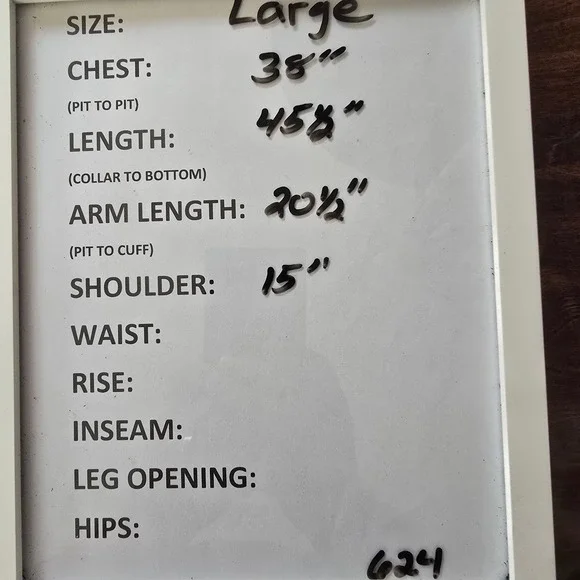 SIZE: Large
CHEST: 38"
(PIT TO PIT)
LENGTH: 45½"
(COLLAR TO BOTTOM)
ARM LENGTH: 20½"
(PIT TO CUFF)
SHOULDER: 15"
WAIST:
RISE:
INSEAM:
LEG OPENING:
HIPS:
624